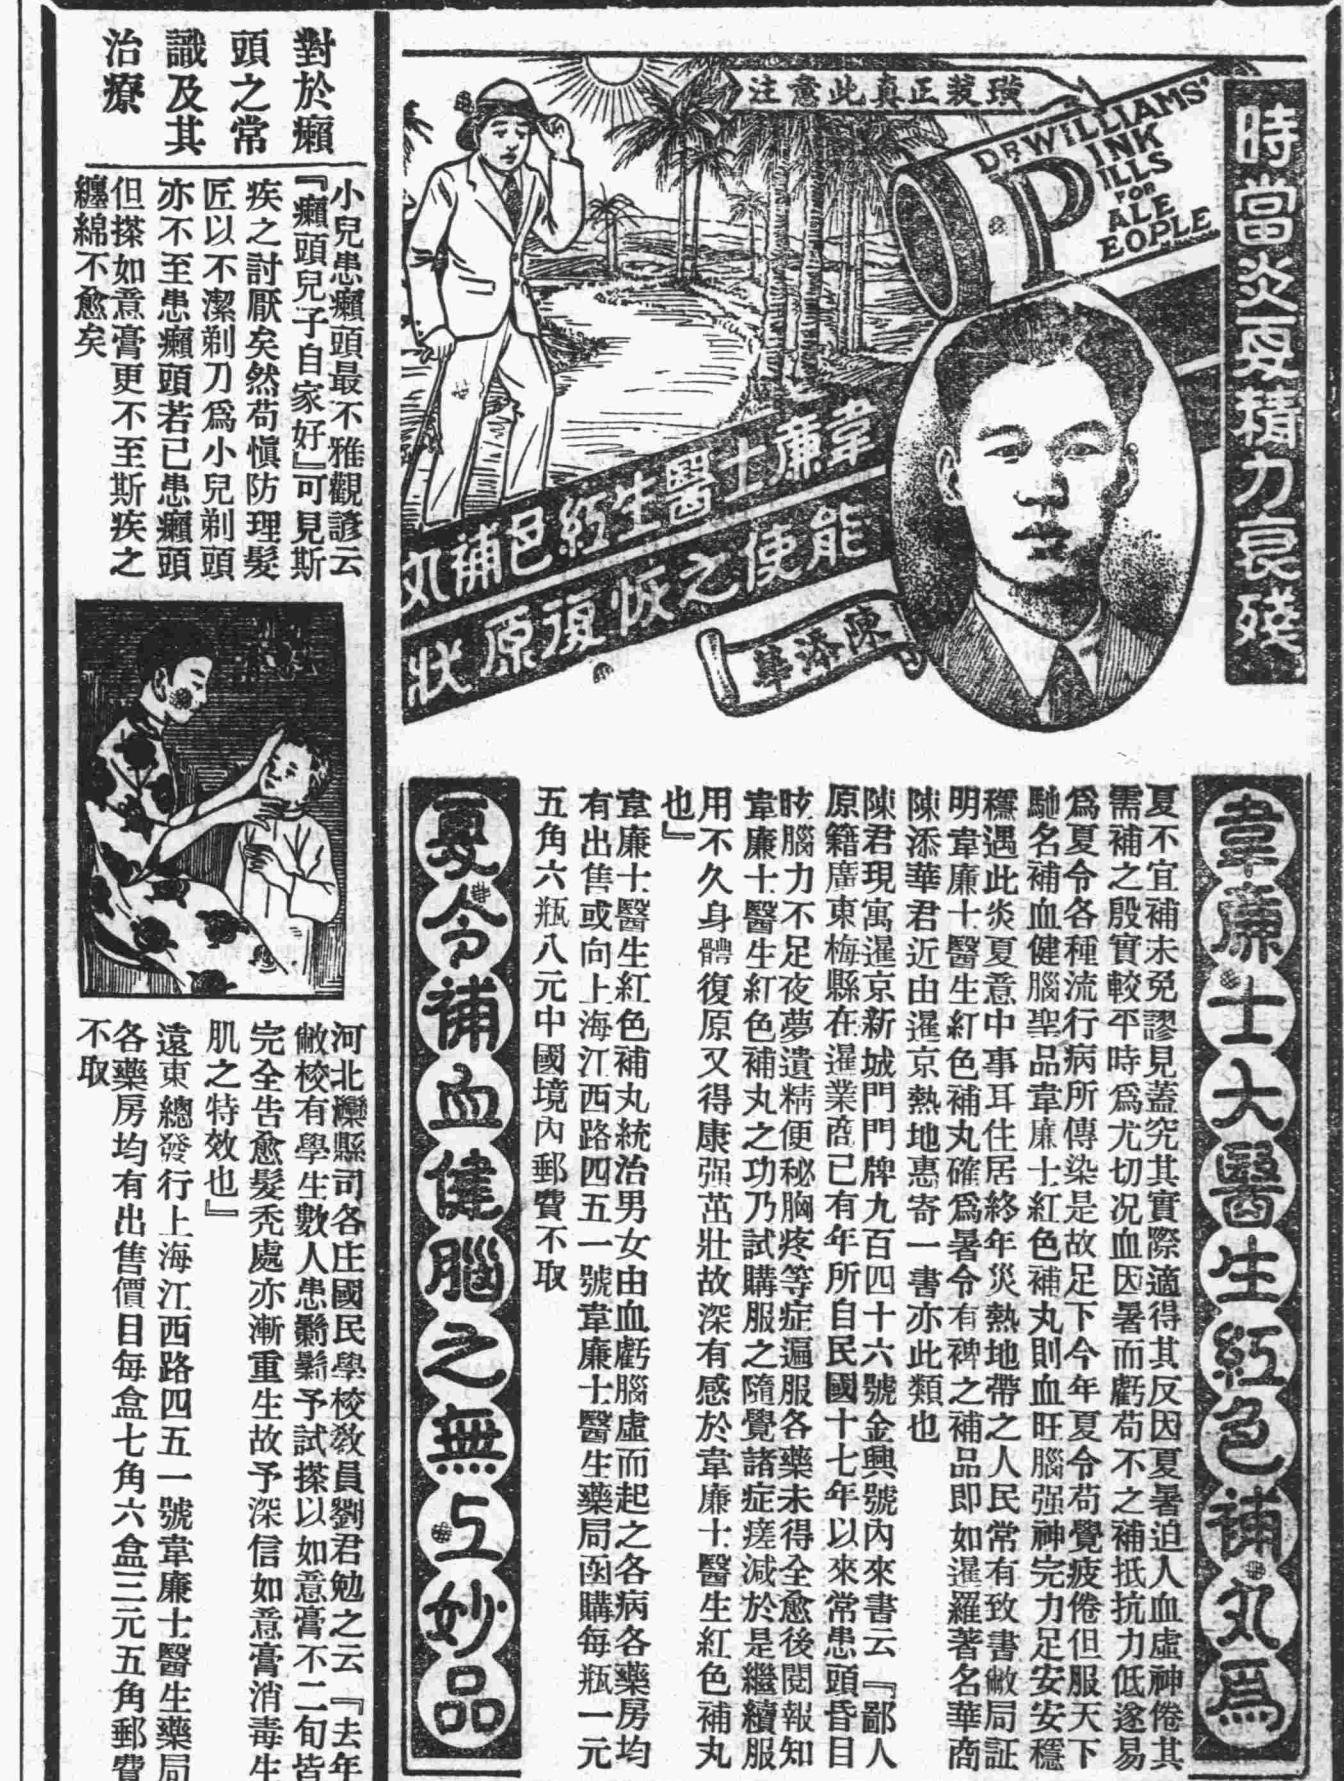 時當炎夏精力衰殘
注意此真正裝璜
DR WILLIAMS'
PINK
PILLS
FOR
PALE
PEOPLE
韋廉士醫生紅色補丸
能使之恢復原狀
陳添華
韋廉士大醫生紅色補丸爲
夏不宜補未免謬見蓋究其實際適得其反因夏暑迫人血虛神倦其
需補之殷實較平時爲尤切况血因暑而虧苟不之補抵抗力低遂易
爲夏令各種流行病所傳染是故足下今年夏令苟覺疲倦但服天下
馳名補血健腦聖品韋廉士紅色補丸則血旺腦强神完力足安安穩
穩遇此炎夏意中事耳住居終年災熱地帶之人民常有致書敝局証
明韋廉士醫生紅色補丸確爲暑令有裨之補品即如暹羅著名華商
陳添華君近由暹京熱地惠寄一書亦此類也
陳君現寓暹京新城門門牌九百四十六號金興號內來書云『鄙人
原籍廣東梅縣在暹業商已有年所自民國十七年以來常患頭昏目
眩腦力不足夜夢遺精便秘胸疼等症遍服各藥未得全愈後閱報知
韋廉士醫生紅色補丸之功乃試購服之隨覺諸症瘥减於是繼續服
用不久身體復原又得康强茁壯故深有感於韋廉士醫生紅色補丸
也』
韋廉士醫生紅色補丸統治男女由血虧腦虛而起之各病各藥房均
有出售或向上海江西路四五一號韋廉士醫生藥局函購每瓶一元
五角六瓶八元中國境內郵費不取
夏令補血健腦之無上妙品
對於癩
頭之常
識及其
治療
小兒患癩頭最不雅觀諺云
『癩頭兒子自家好』可見斯
疾之討厭矣然苟愼防理髮
匠以不潔剃刀爲小兒剃頭
亦不至患癩頭若已患癩頭
但搽如意膏更不至斯疾之
纏綿不愈矣
河北灤縣司各庄國民學校敎員劉君勉之云『去年
敝校有學生數人患鬎鬁予試搽以如意膏不二旬皆
完全告愈髮禿處亦漸重生故予深信如意膏消毒生
肌之特效也』
遠東總發行上海江西路四五一號韋廉士醫生藥局
各藥房均有出售價目每盒七角六盒三元五角郵費
不取